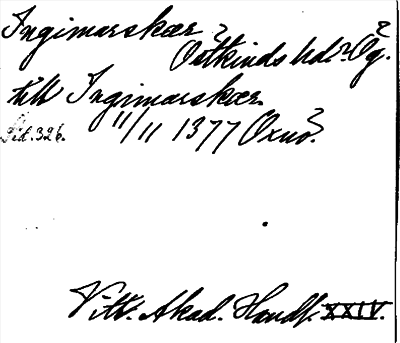 Ingimarskær ?
Östkinds hd. ? Ög.
till Ingimarskær.
11/11 1377 Oxnö ?
Sid. 326.
Vitt. Akad. Handl. XXIV.